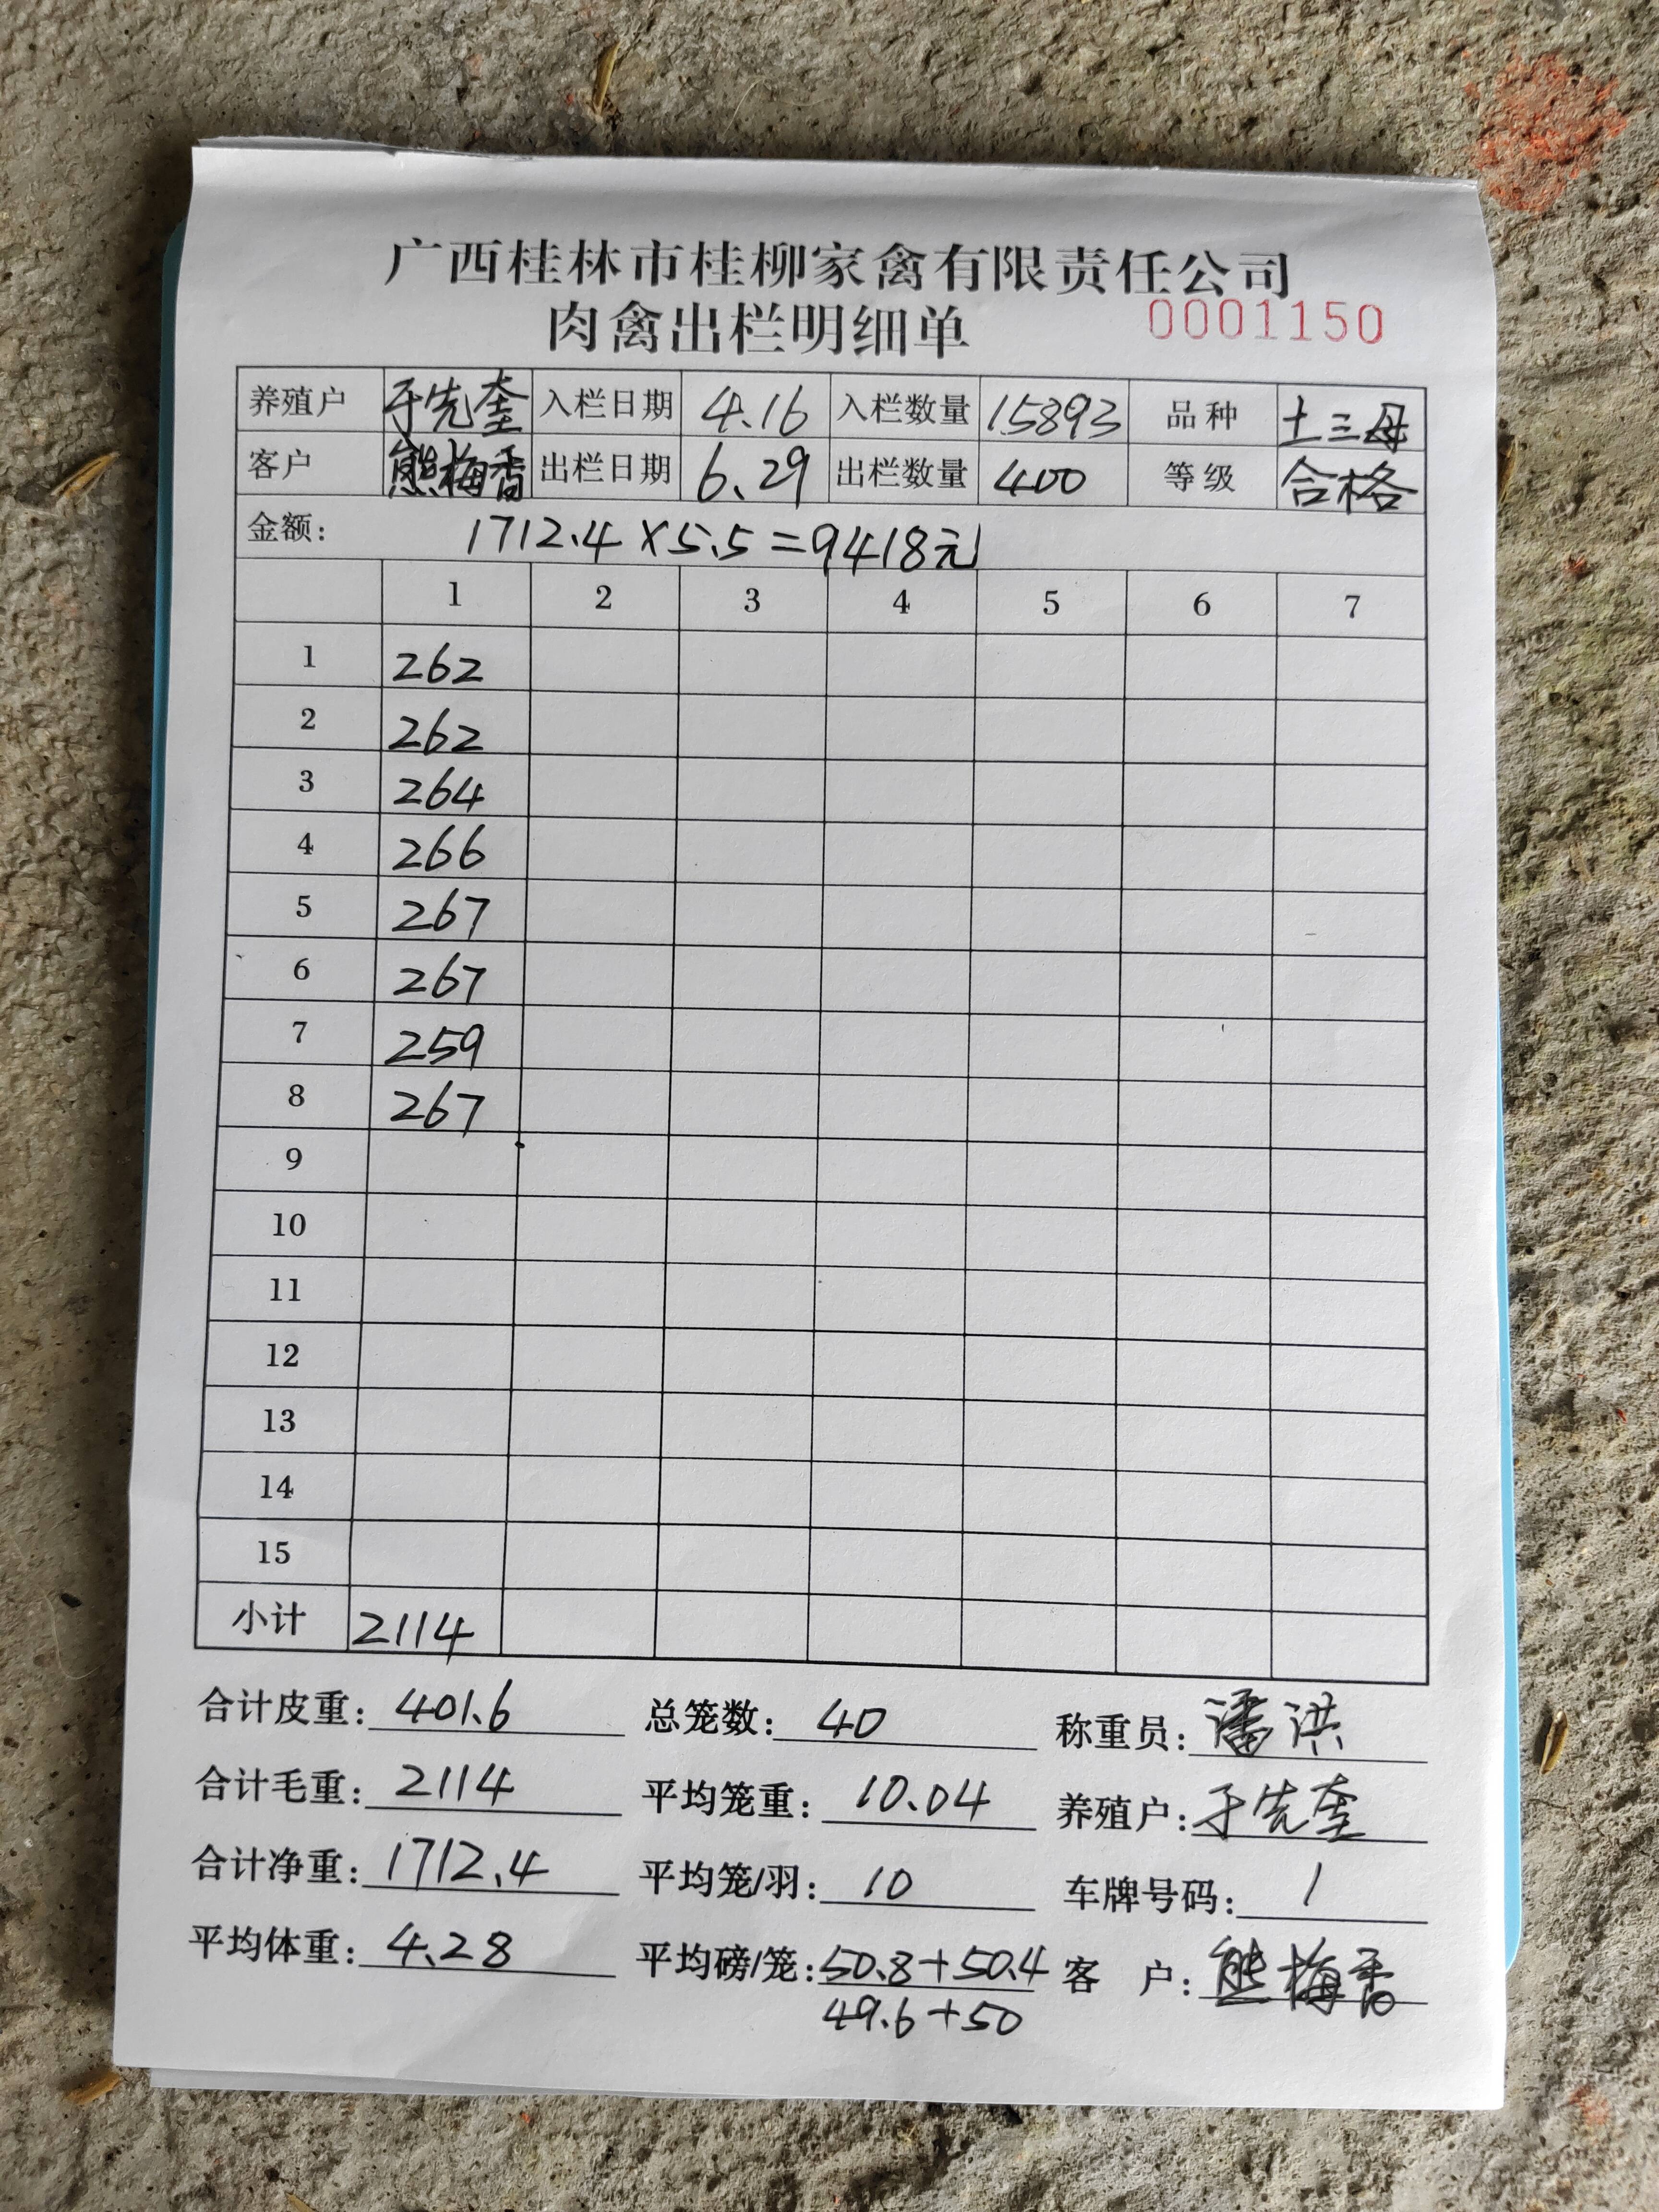 广西桂林市桂柳家禽有限责任公司
肉禽出栏明细单 0001150
养殖户 于先奎 入栏日期 4.16 入栏数量 15893 品种 土三母
客户 熊梅香 出栏日期 6.29 出栏数量 400 等级 合格
金额: 1712.4×5.5=9418元
1 2 3 4 5 6 7
1 262
2 262
3 264
4 266
5 267
6 267
7 259
8 267
9
10
11
12
13
14
15
小计 2114
合计皮重: 401.6 总笼数: 40 称重员: 潘洪
合计毛重: 2114 平均笼重: 10.04 养殖户: 于先奎
合计净重: 1712.4 平均笼/羽: 10 车牌号码: 1
平均体重: 4.28 平均磅/笼: 50.8+50.4 客 户: 熊梅香
49.6+50